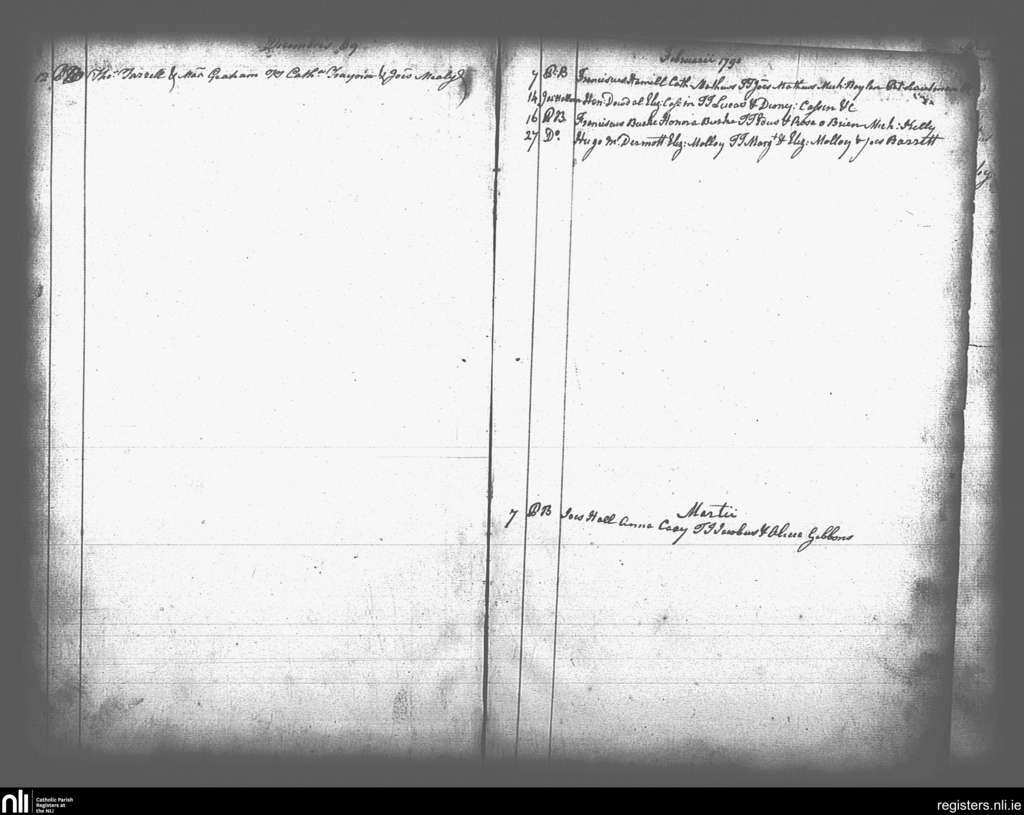 Decembris 89
12 PB Thos Farrell & Mar Graham TTs Cathn Traynor & Joes Mealy
Februarii 1790
7 P:B Franciscus Hamill Cath Mathews TT Joes Mathews Mich Boylan Pat Lawler
14 Hen Doud al Eliz: Cassin TT Lucas & Diony: Cassin &c
16 PB Franciscus Burke Honora Burke TT & Rose o Brien Mich: Kelly
27 Do Hugo Mc Dermott Eliz: Molloy TT Margt & Eliz: Molloy & Joes Barrett
Martii
7 PB Joes Hall Anna Casy TT Jacobus & Alicia Gibbons
nli
Catholic Parish
Registers at
the NLI
registers.nli.ie